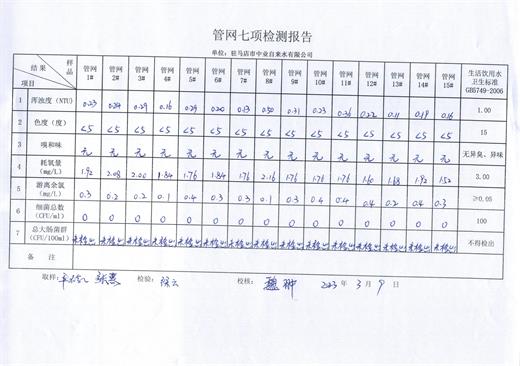 管网七项检测报告
单位：驻马店市中业自来水有限公司
结果 样品 项目 管网1# 管网2# 管网3# 管网4# 管网5# 管网6# 管网7# 管网8# 管网9# 管网10# 管网11# 管网12# 管网13# 管网14# 管网15# 生活饮用水卫生标准GB5749-2006
1 浑浊度（NTU） 0.23 0.24 0.29 0.16 0.29 0.20 0.13 0.50 0.31 0.23 0.36 0.22 0.11 0.19 0.16 1.00
2 色度（度） <5 <5 <5 <5 <5 <5 <5 <5 <5 <5 <5 <5 <5 <5 <5 15
3 嗅和味 无 无 无 无 无 无 无 无 无 无 无 无 无 无 无 无异臭、异味
4 耗氧量（mg/L） 1.92 2.08 2.00 1.84 1.76 1.84 1.76 2.16 1.76 1.76 1.76 1.60 1.68 1.92 1.52 3.00
5 游离余氯（mg/L） 0.3 0.2 0.2 0.1 0.4 0.3 0.3 0.1 0.3 0.4 0.4 0.4 0.2 0.4 0.3 ≥0.05
6 细菌总数（CFU/ml） 0 0 0 0 0 0 0 0 0 0 0 0 0 0 0 100
7 总大肠菌群（CFU/100ml） 未检出 未检出 未检出 未检出 未检出 未检出 未检出 未检出 未检出 未检出 未检出 未检出 未检出 未检出 未检出 不得检出
备 注
取样： 检验：徐云 校核： 2023 年 3 月 9 日